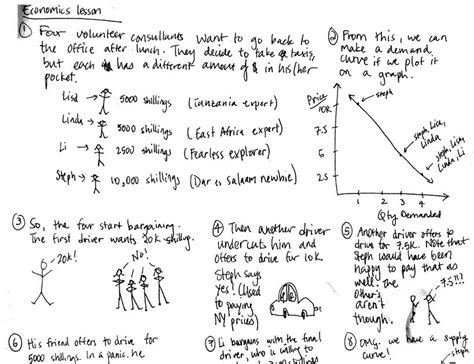 Economics lesson
① Four volunteer consultants want to go back to
the office after lunch. They decide to take a taxi,
but each has a different amount of $ in his/her
pocket.
Lisa → 5000 shillings (Tanzania expert)
Linda → 5000 shillings (East Africa expert)
Li → 2500 shillings (Fearless explorer)
Steph → 10,000 shillings (Dar es Salaam newbie)
② From this, we can
make a demand
curve if we plot it
on a graph.
Price
10K
7.5
5
2.5
Steph
Steph, Lisa,
Linda
Steph, Lisa,
Linda, Li
1 2 3 4
Qty Demanded
③ So, the four start bargaining.
The first driver wants 20K shillings.
20K!
No!
④ Then another driver
undercuts him and
offers to drive for 10K
Steph says
yes! (Used
to paying
NY prices)
⑤ Another driver offers to
drive for 7.5K. Note that
Steph would have been
happy to pay that as
well. The
others
aren't
though.
7.5!!?
⑥ His friend offers to drive for
5000 shillings. In a panic, he
⑦ Li bargains with the final
driver, who is willing to
⑧ OMG. We have a supply
curve!